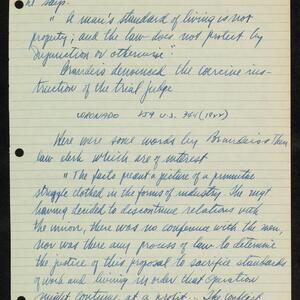 he says:
" A man's standard of living is not
property; and the law does not protect by
injunction or otherwise".
Brandeis denounced the coercive ins-
truction of the trial judge
CORONADO 259 U.S. 344 (1922)
Here were some words by Brandeis
law clerk which are of interest
" The facts present a picture of a primitive
struggle clothed in the forms of industry. The mgt
having decided to discontinue relations with
the union, there was no conference with the men,
nor was there any process of law to determine
the justice of this proposal to sacrifice standards
of work and living in order that operation
might continue at a profit...